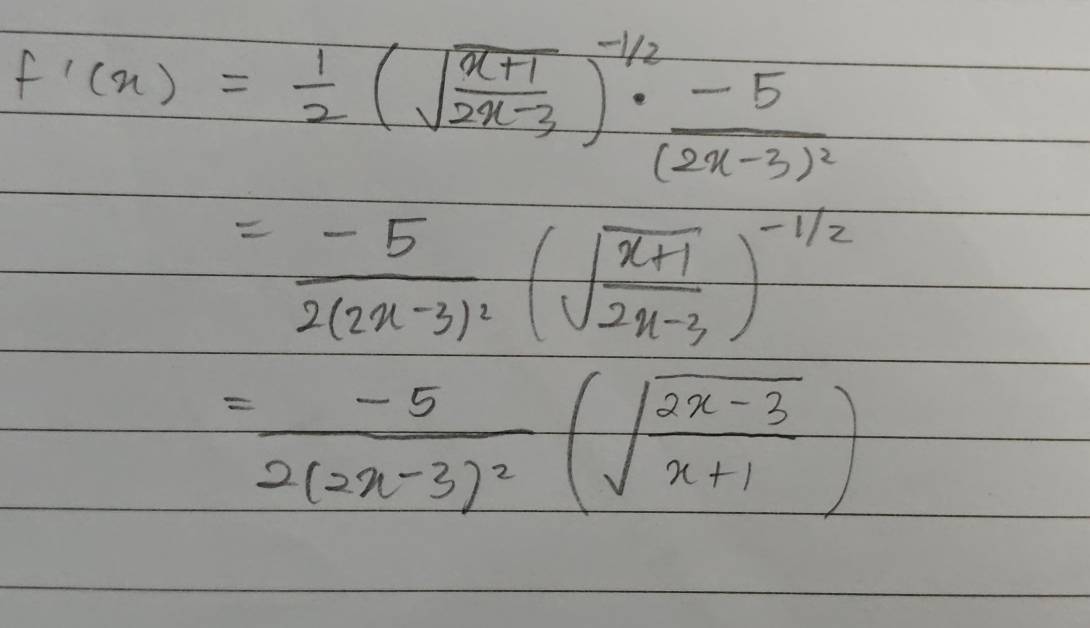 f'(x) = 1/2 (√((x+1)/(2x-3)))^(-1/2) · -5/(2x-3)²
= -5/(2(2x-3)²) (√((x+1)/(2x-3)))^(-1/2)
= -5/(2(2x-3)²) (√((2x-3)/(x+1)))